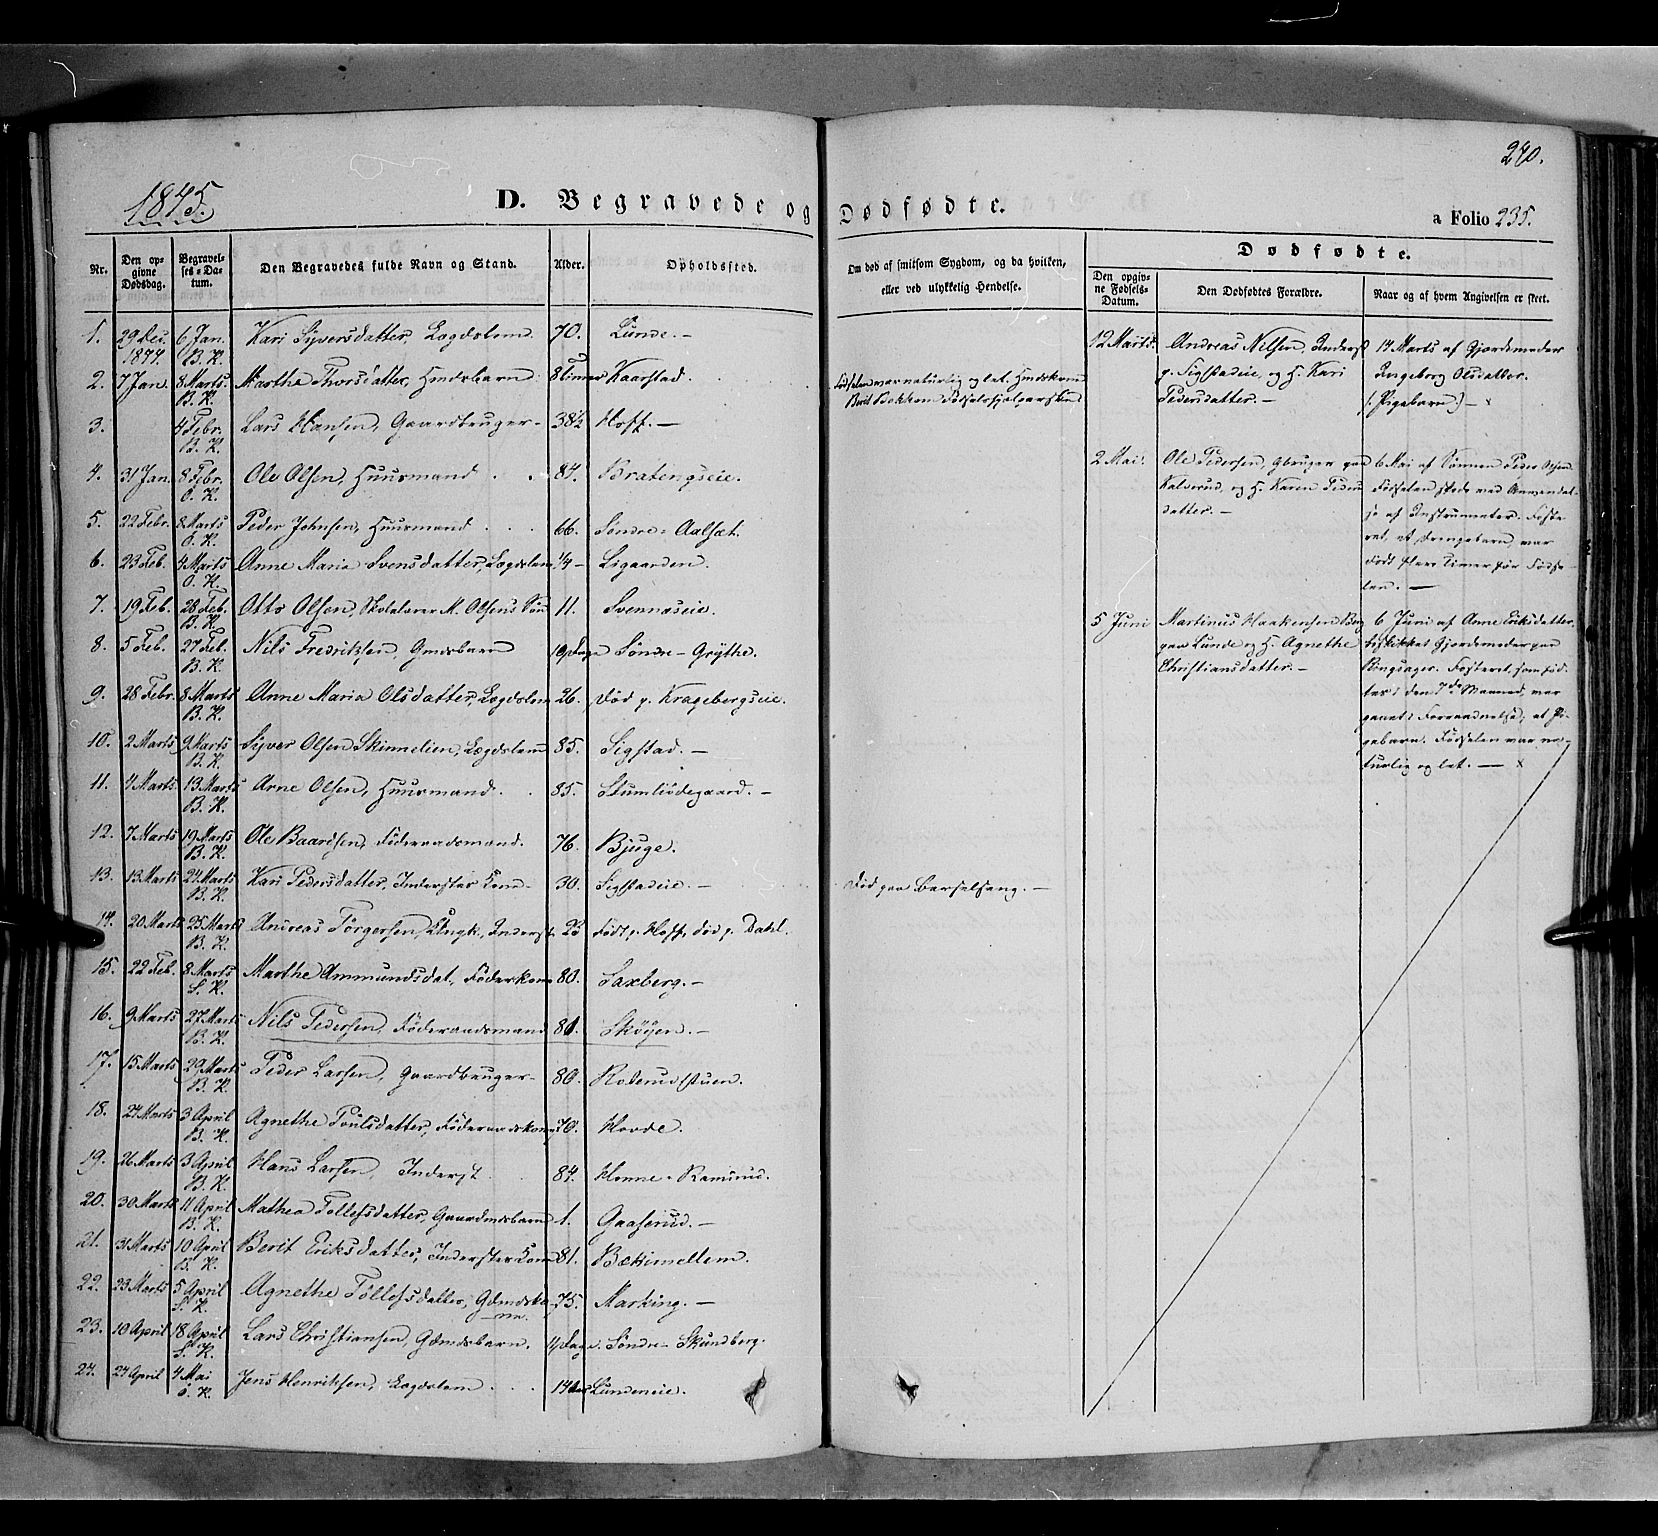 240.
1845.
D. Begravede og Dødfødte.
a Folio 235.
Nr.
Den opgivne Dødsdag.
Begravelses-Datum.
Den Begravedes fulde Navn og Stand.
Alder.
Opholdssted.
Om død af smitsom Sygdom, og da hvilken,
eller ved ulykkelig Hendelse.
Dødfødte.
Den opgivne Fødsels-Datum.
Den Dødfødtes Forældre.
Naar og af hvem Angivelsen er skeet.
1. 29 Dec. 1844. 6 Jan. B. K. Kari Syversdatter, Lægdslem 70. Lunde.-
2. 7 Jan. 8 Marts. B. K. Marthe Thorsdatter, 8 Timer Kaarstad.
Fødselen var naturlig og let.
Berit Bakken
3. 4 Febr. B. K. Lars Hansen, Gaardbruger- 38½ Hoff.-
4. 31 Jan. 8 Febr. Ø. K. Ole Olsen, Huusmand 84. Bratengseie.
5. 22 Febr. 8 Marts Ø. K. Peder Johnsen, Huusmand 66. Søndre-Aalset.
6. 23 Feb. 4 Marts Ø. K. Anne Maria Svensdatter, Lægdslem 1/4- Ligaarden.
7. 19 Feb. 28 Feb. B. K. Otto Olsen, Skolelærer M. Olsens Søn 11. Svennæseie.
8. 5 Feb. 27 Feb. B. K. Nils Fredriksen, Gmdsbarn 10 Dage Søndre-Grythe.
9. 28 Febr. 8 Marts B. K. Anne Maria Olsdatter, Lægdslem 26. Død p. Kragebergseie.
10. 2 Marts 9 Marts B. K. Syver Olsen Skinnelien, Lægdslem 85. Sigstad.-
11. 4 Marts. 13 Marts B. K. Arne Olsen, Huusmand. 85. Skumliødegaard.-
12. 7 Marts 19 Marts B. K. Ole Baardsen, Føderaadsmand. 76. Bjuge.
13. 13 Marts 24 Marts B. K. Kari Pedersdatter, Inderster Kone- 30. Sigstadeie.-
Død paa Barselseng.-
14. 20 Marts 25 Marts B. K. Andreas Torgersen, Ungk., Inderst 23 Født p. Hoff, død p. Dahl.
15. 22 Feb. 8 Marts S. K. Marthe Ammundsdat., Føderkone 80. Saxberg.-
16. 9 Marts 27 Marts B. K. Nils Pedersen, Føderaadsmand 81. Skøyen.-
17. 15 Marts 29 Marts B. K. Peder Larsen, Gaardbruger- 80. Roterudstuen.
18. 24 Marts 3 April B. K. Agnethe Poulsdatter, Føderaadskone 70. Hovde.
19. 26 Marts 3 April B. K. Hans Larsen, Inderst. 84. Honne-Ramsrud.
20. 30 Marts 11 April B. K. Mathea Tollefsdatter, Gaardmdsbarn 1. Gaaserud.-
21. 31 Marts 10 April B. K. Berit Eriksdatter, Inderster Kone 81. Bækimellem.
22. 23 Marts 5 April S. K. Agnethe Tollefsdatter, Gdmdsko-ne. 75. Marking.-
23. 10 April 18 April S. K. Lars Christiansen, Gdmdsbarn. 11 Dage. Søndre-Skundberg.
24. 24 April 4 Mai Ø. K. Jens Henriksen, Lægdslem. Lundeneie.
12 Marts. Andreas Nilsen, Inderst
p. Sigstadeie, og H. Kari
Pedersdatter.-
14 Marts af Gjordemoder
Ingeborg Olsdatter.
(: Pigebarn :) - x
2 Mai. Ole Pedersen, Gbruger paa
Kalverud, og H. Karen Peders
datter.-
6 Mai af Sønnen Peder Olsen.
Fødselen skede med Anvendel-
se af Instrumenter. Foste-
ret, et Drengebarn, var
dødt flere Timer før Fødse-
len.-
5 Juni Martinus Haakensen
paa Lunde og H. Agnethe
Christiansdatter.-
6 Juni af Anne Eriksdatter,
beskikket Gjordemoder paa
Ringsager. Fosteret, som fød-
tes i den 7de Maaned, var
gaaet i Forraadnelse, et Pi-
gebarn. Fødselen var na-
turlig og let.- x